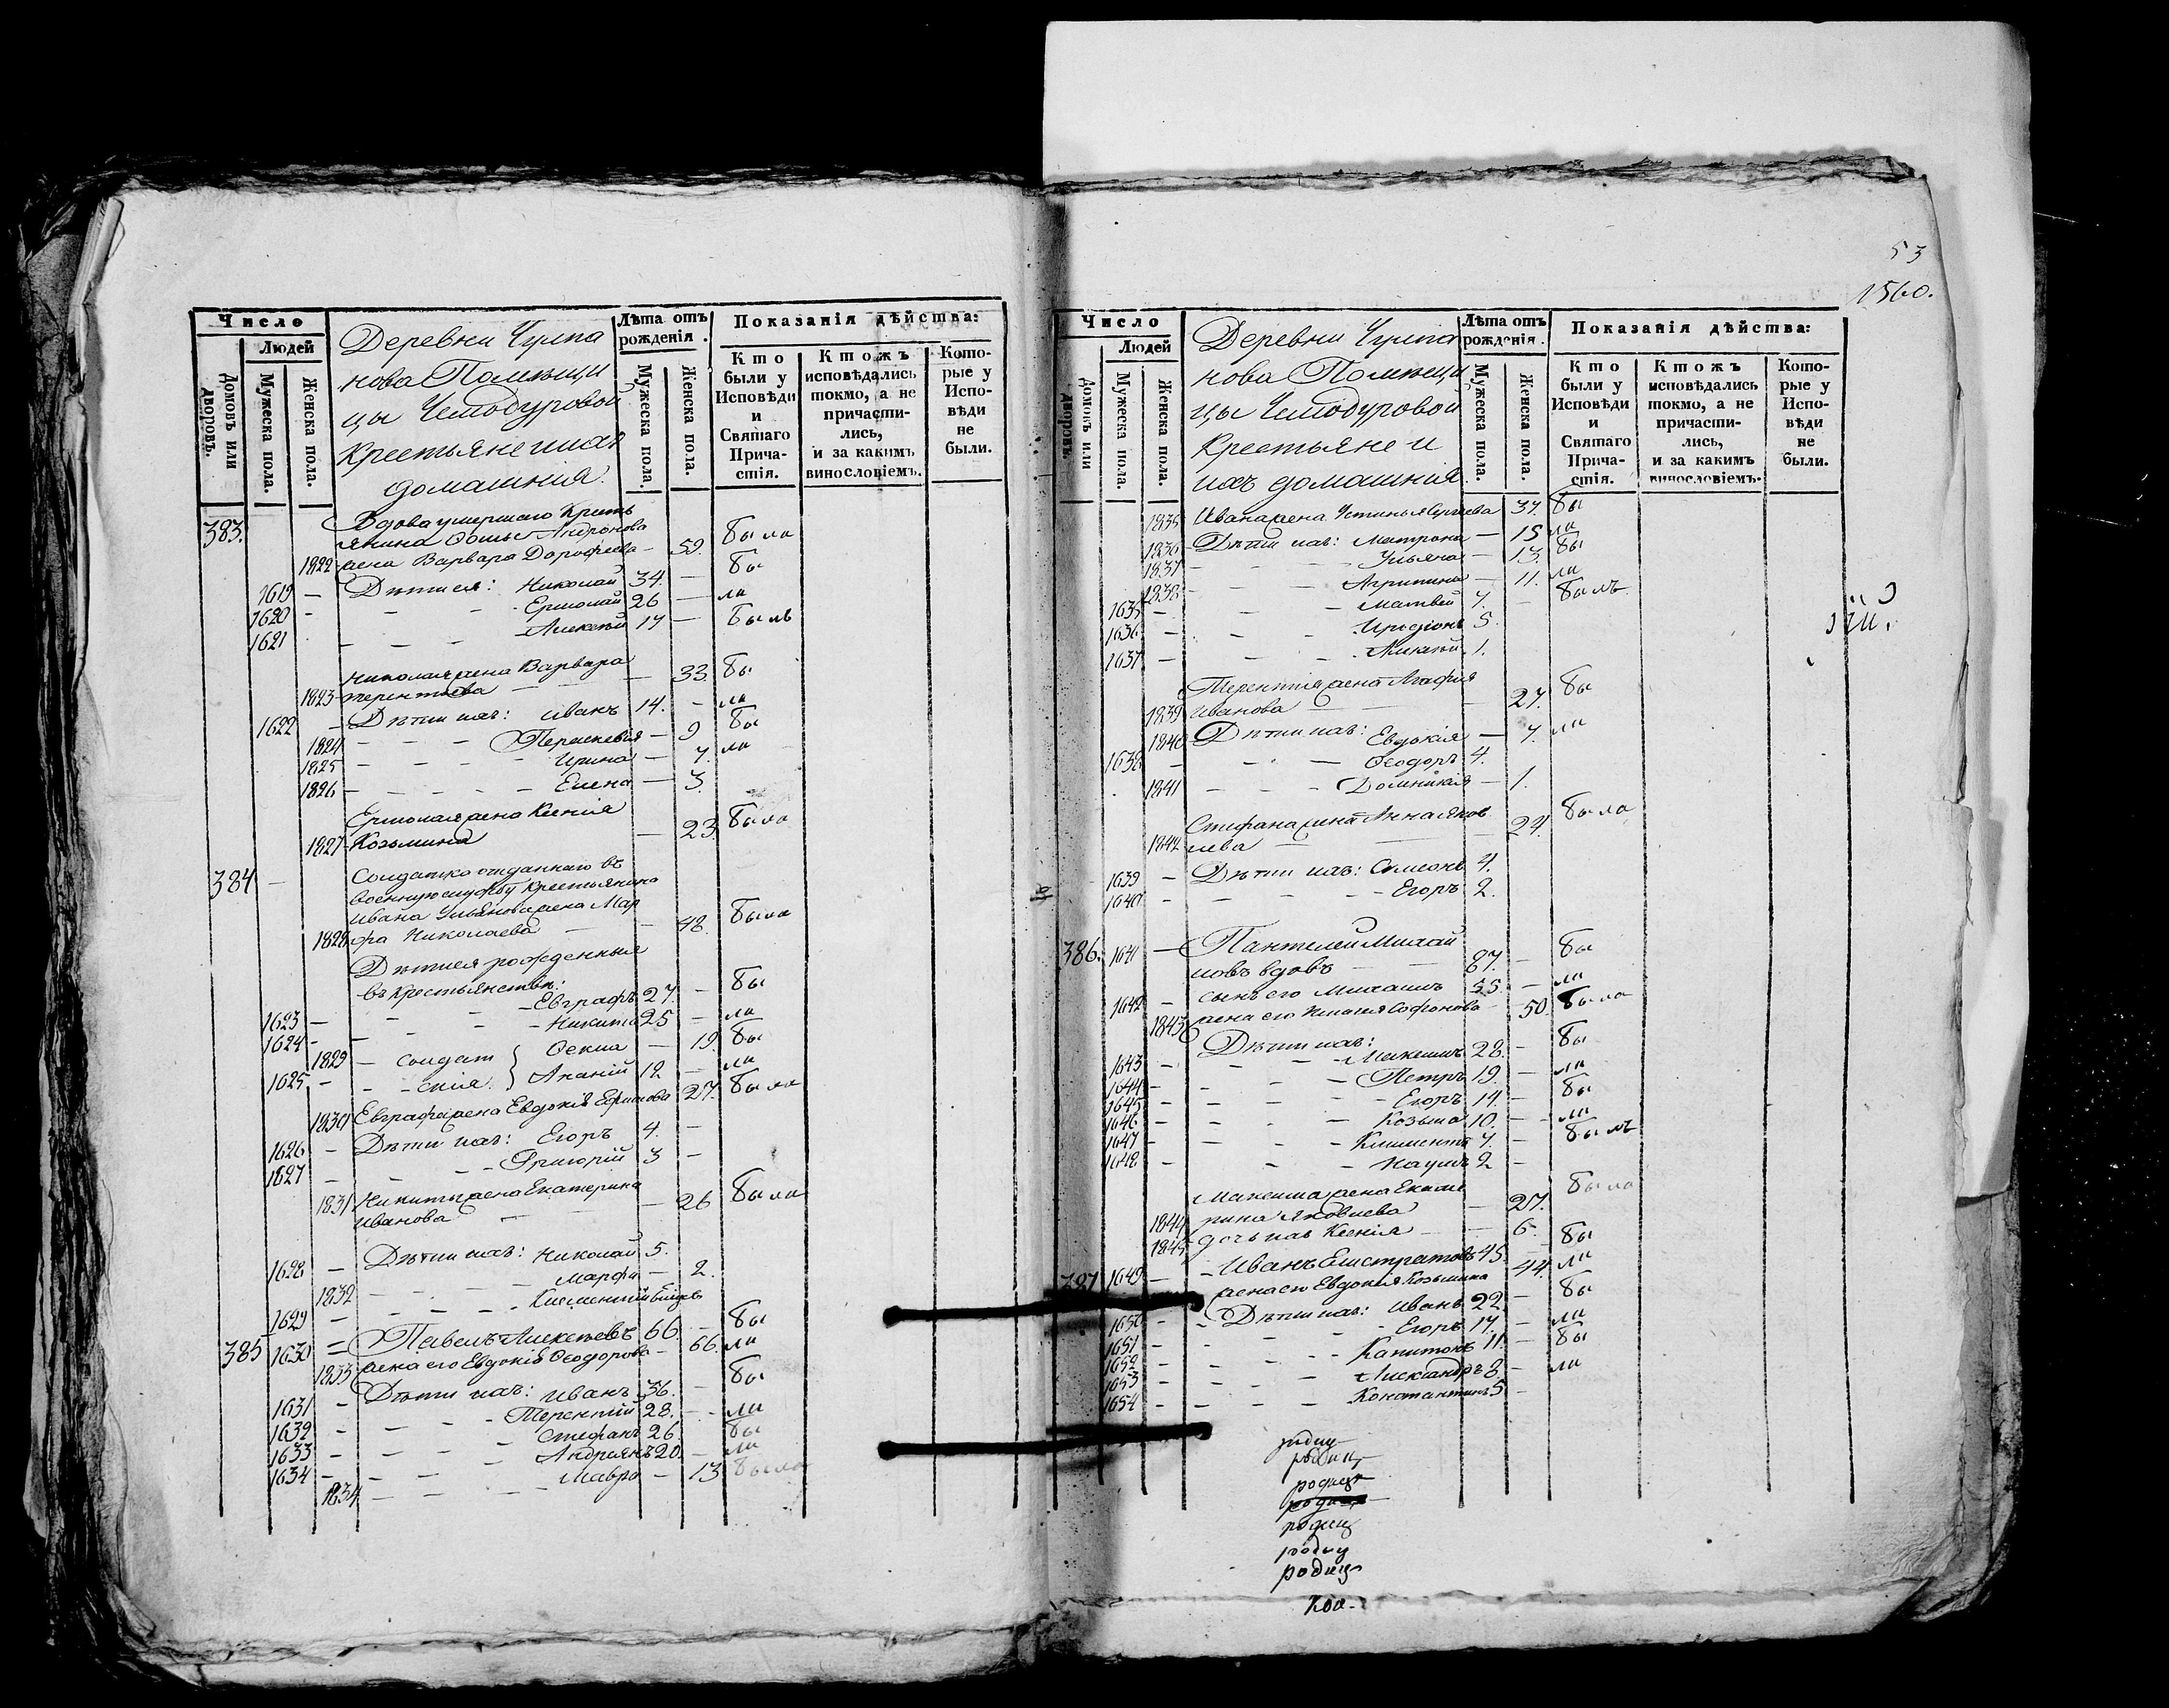 Число
Людей
Домовъ или дворовъ.
Мужеска пола.
Женска пола.
Деревни Чулпа
нова Помѣщи
цы Чемодуровой
Крестьяне и ихъ
домашнія.
Лѣта отъ рожденія.
Мужеска пола.
Женска пола.
Показанія дѣйства:
Кто были у Исповѣди и Святаго Причастія.
Ктожъ исповѣдались токмо, а не причастились, и за какимъ винословіемъ.
Которые у Исповѣди не были.
383. Вдова умершаго Кресть
янина Андронова
1822 жена Варвара Дорофеева — 59. была
1619 — Дѣти ея: Николай 34. — бы
1620 — Ермолай 26 — ли
1621 — Алексѣй 17 — былъ
Николая жена Варвара
1823 Терентьева — 33. бы
1622 — Дѣти ихъ: Иванъ 14. — ли
1824 — Параскевія — 9 бы
1825 — Ирина — 7. ли
1826 — Елена — 3.
Ермолая жена Ксенія
1827 Козьмина — 23. была
384 — Солдатка отданнаго въ
военную службу крестьянина
Ивана Ульянова жена Мар
1828 фа Николаева — 48. была
Дѣти ея рожденныя
въ крестьянствѣ:
1623 — Евграфъ 27. — бы
1624 — Никита 25 — ли
1829 — солдат } Фекла — 19. бы
1625 — скія } Ананій 12 — ли
1830 Евграфа жена Евдокія Ефимова 27. была
1626 — Дѣти ихъ: Егоръ 4. —
1627 — Григорій 3 —
1831 Никиты жена Екатерина
Иванова — 26 была
1628 — Дѣти ихъ: Николай 5.
1832 — Марфа — 2.
1629 — Климентій
385 1630 — Павелъ Алексѣевъ 66. — бы
1833 жена его Евдокія Ѳеодорова — 66. ли
1631 — Дѣти ихъ: Иванъ 36. — бы
1632 — Терентій 28. — ли
1633 — Стефанъ 26. бы
1634 — Андриянъ 20. — ли
1834 — Мавра — 13 была
53
1560.
Число
Людей
Домовъ или дворовъ.
Мужеска пола.
Женска пола.
Деревни Чулпа
нова Помѣщи
цы Чемодуровой
Крестьяне и
ихъ домашнія.
Лѣта отъ рожденія.
Мужеска пола.
Женска пола.
Показанія дѣйства:
Кто были у Исповѣди и Святаго Причастія.
Ктожъ исповѣдались токмо, а не причастились, и за какимъ винословіемъ.
Которые у Исповѣди не были.
1835 Ивана жена Устинья Сергѣева 37. бы
1836 Дѣти ихъ: Матрона — 15 ли
1837 — Ульяна — 13. бы
1838 — Агрипина — 11. ли
1635 — Матвей 7. — былъ
1636 — Иродіонъ 5.
1637 — 1.
Терентія жена Агафія
1839 Иванова — 27. бы
1840 Дѣти ихъ: Евдокія — 7. ли
1638 — Ѳеодоръ 4.
1841 — Домникія — 1.
Стефана жена Анна Яков
1842 лева — 24. была
1639 — Дѣти ихъ: Симеонъ 4.
1640 — Егоръ 2.
386. 1641 — Пантелей Михай
ловъ вдовъ 87. — бы
1642 — сынъ его Михаилъ 55. — ли
1843 жена его Софонова — 50. была
Дѣти ихъ:
1643 — Максимъ 28. — бы
1644 — Петръ 19. — ли
1645 — Егоръ 14. — бы
1646 — Козьма 10. — ли
1647 — Климентъ 7. — былъ
1648 — Наумъ 2 —
Максима жена Екате
1844 рина Яковлева — 27. была
1845 дочь ихъ Ксенія — 6.
387 1649 — Иванъ Елистратовъ 45. бы
жена его Евдокія Козьмина 44. ли
1650 — Дѣти ихъ: Иванъ 22. — бы
1651 — Егоръ 17. — ли
1652 — Капитонъ 11. — бы
1653 — Александръ 8. — ли
1654 — Константинъ 5 —
родиц
родиц
родиц
родиц
родиц